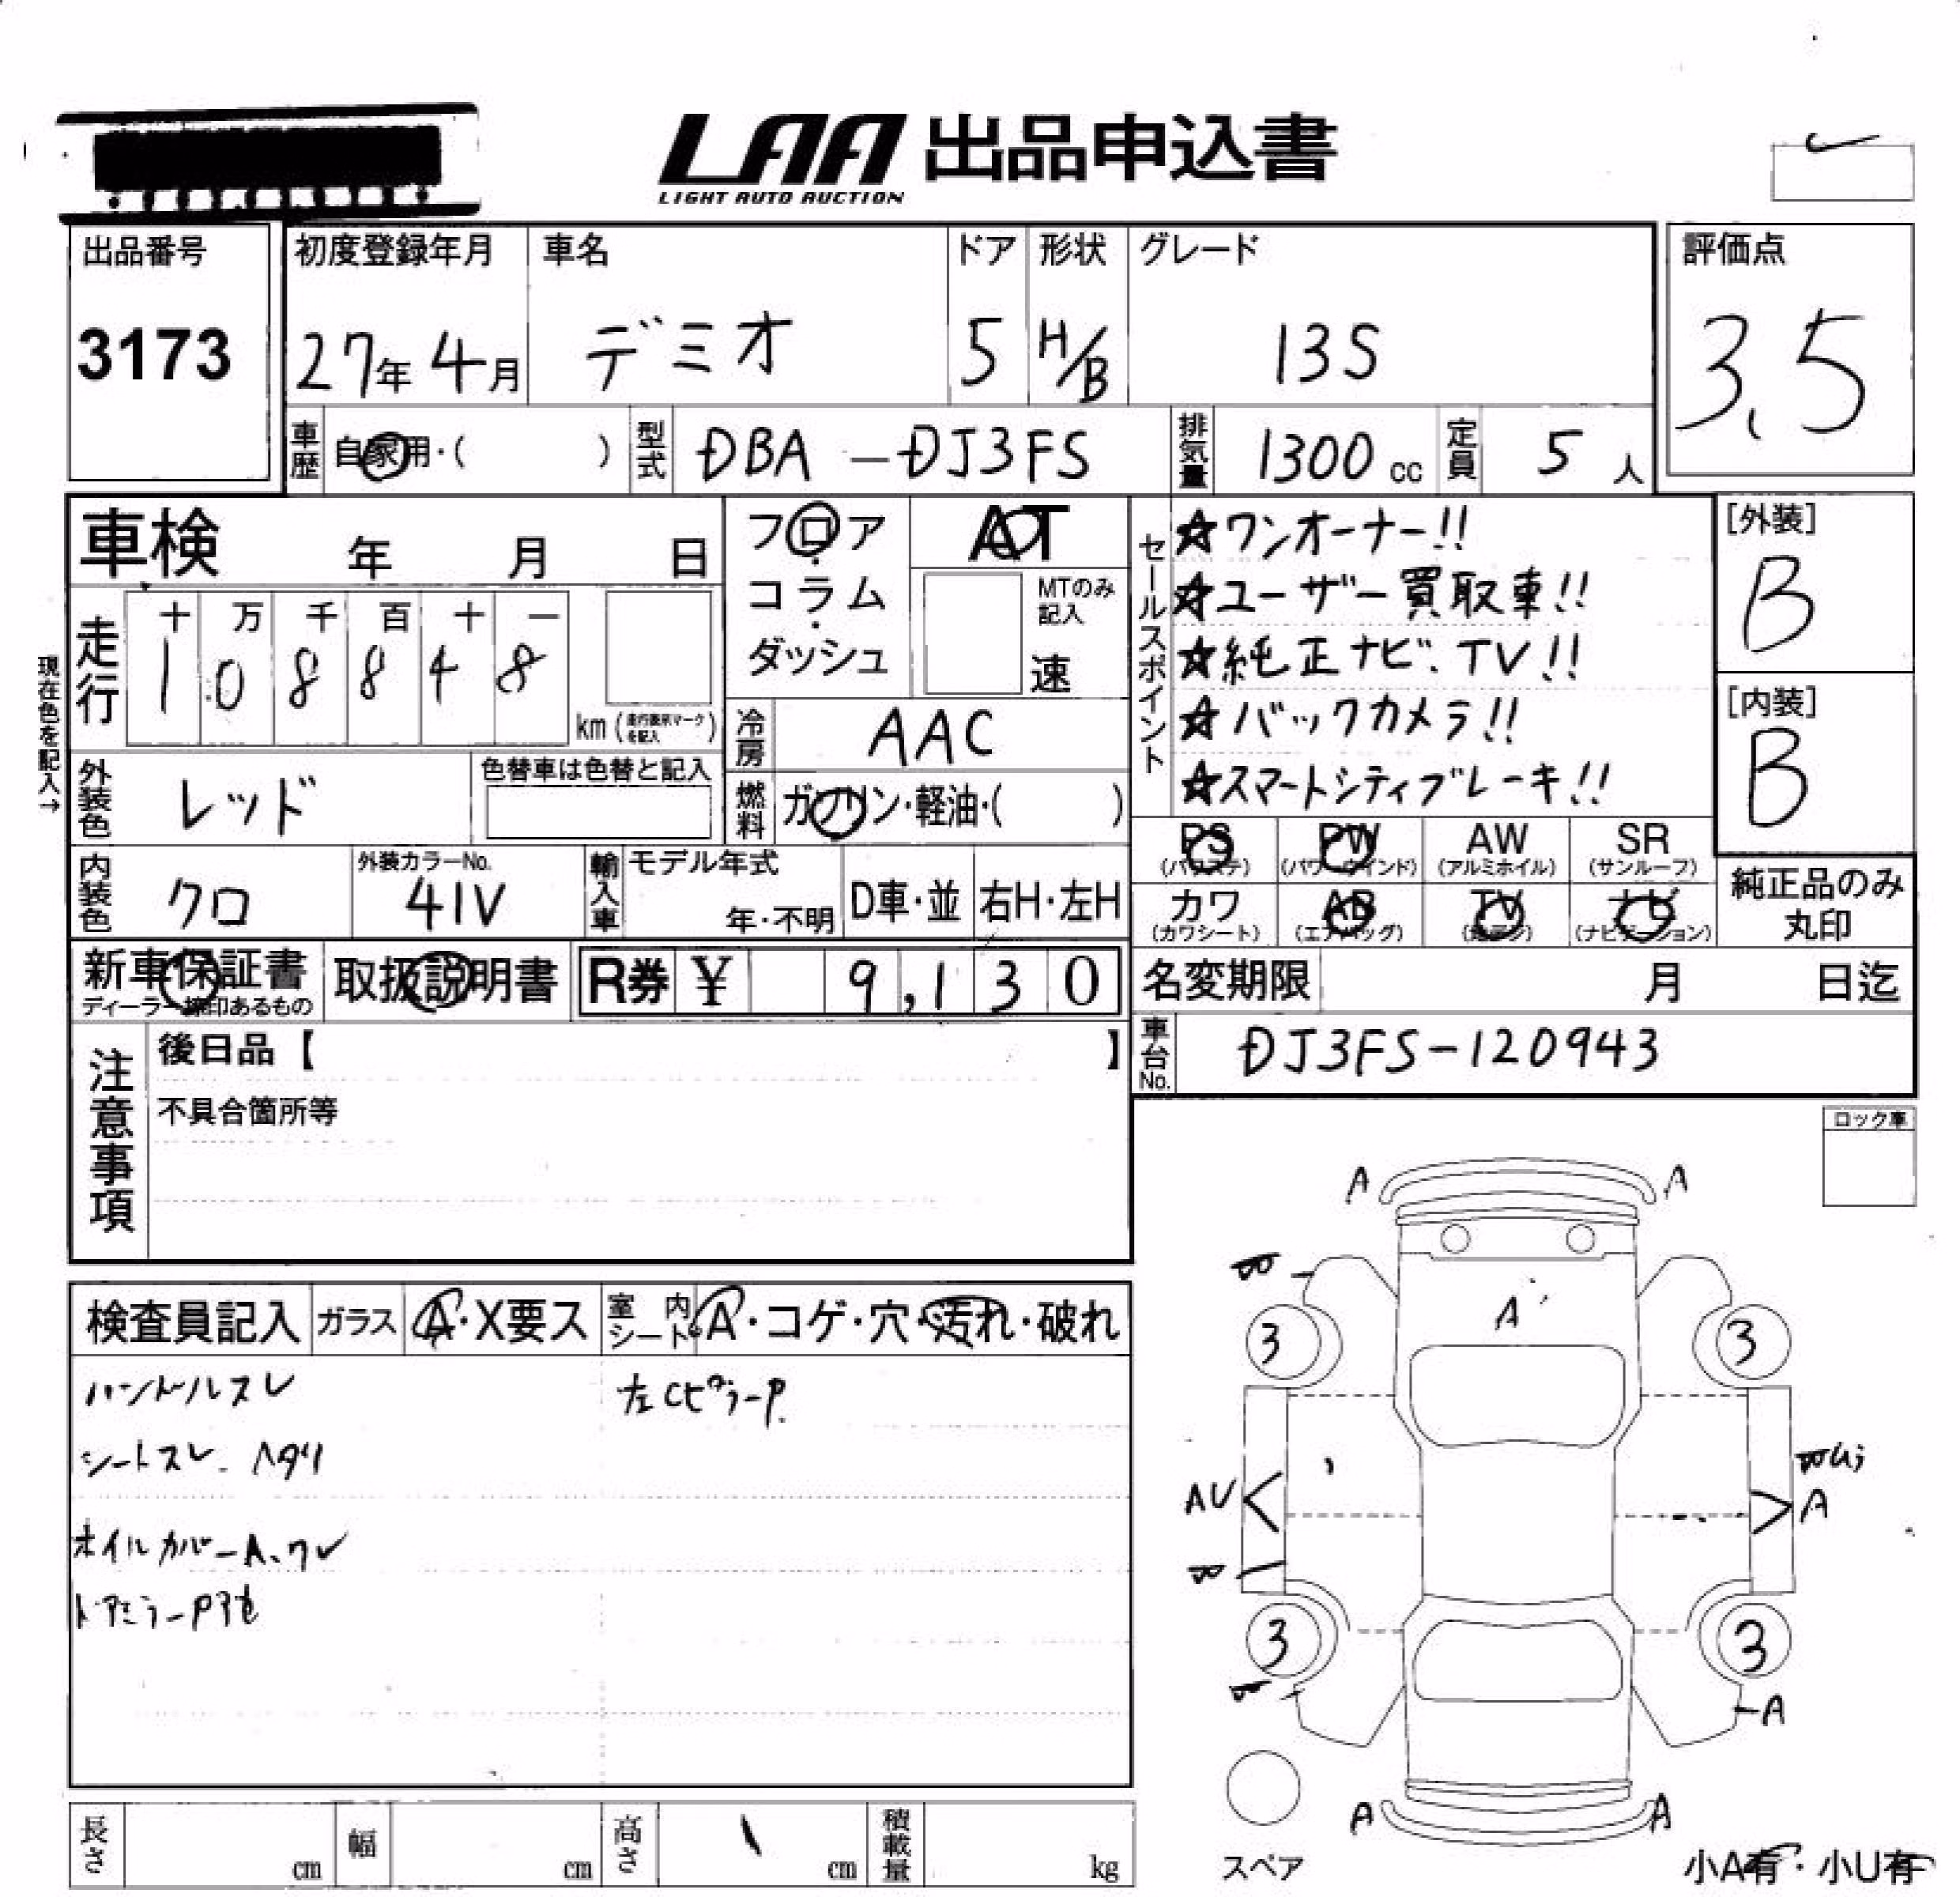 LAA 出品申込書
LIGHT AUTO AUCTION
出品番号
3173
初度登録年月
27年 4月
車名
デミオ
ドア
5
形状
H/B
グレード
13S
評価点
3.5
車歴
自家用・( )
型式
DBA-DJ3FS
排気量
1300 cc
定員
5 人
車検 年 月 日
フロア
コラム
ダッシュ
AT
MTのみ
記入
速
セールスポイント
☆ワンオーナー!!
☆ユーザー買取車!!
☆純正ナビ.TV!!
☆バックカメラ!!
☆スマートシティブレーキ!!
[外装]
B
[内装]
B
現在色を記入→
走行
十 万 千 百 十 一
1 0 8 8 4 8
km (走行表示マークを記入)
冷房
AAC
燃料
ガソリン・軽油・( )
外装色
レッド
色替車は色替と記入
内装色
クロ
外装カラーNo.
41V
輸入車
モデル年式
年・不明
D車・並
右H・左H
PS
(パワステ)
PW
(パワーウインド)
AW
(アルミホイル)
SR
(サンルーフ)
カワ
(カワシート)
AB
(エアバッグ)
TV
(地デジ)
ナビ
(ナビゲーション)
純正品のみ
丸印
新車保証書
ディーラー捺印あるもの
取扱説明書
R券 ¥ 9,130
名変期限 月 日迄
車台No.
DJ3FS-120943
注意事項
後日品【 】
不具合箇所等
ロック車
検査員記入
ガラス
A・X要ス
室内
シート
A・コゲ・穴・汚れ・破れ
ハンドルスレ
左CピラーP.
シートスレ. ヘタリ
オイルカバーA、ワレ
ドアミラーP
A A
A
3 3
AU A
3 3
A
A A
スペア
小A有・小U有
長さ cm
幅 cm
高さ cm
積載量 kg